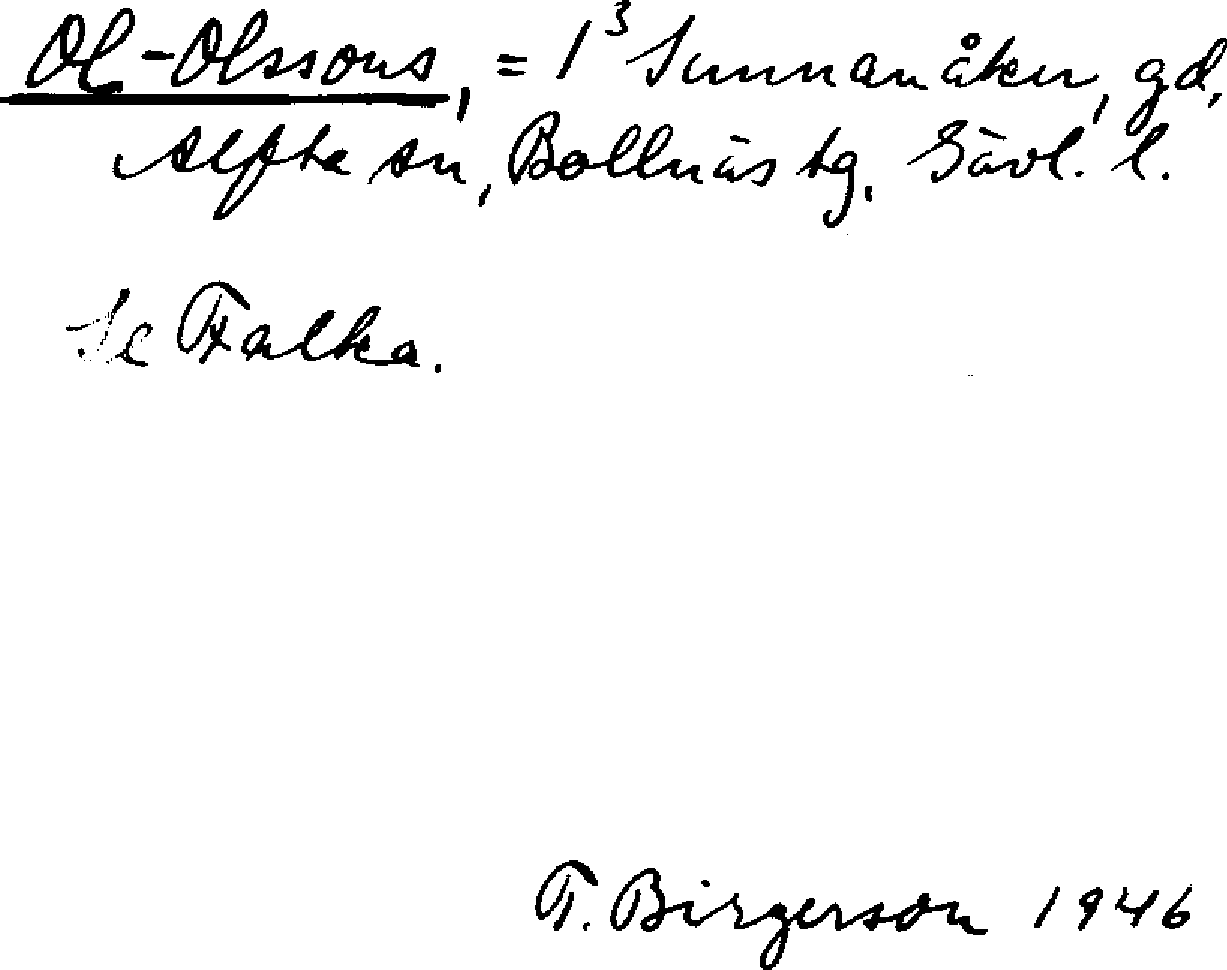 Ol-Olssons, = 1³ Sunnanåker, gd,
Alfta sn, Bollnäs tg, Gävl. l.
Se Falka.
T. Birgerson 1946